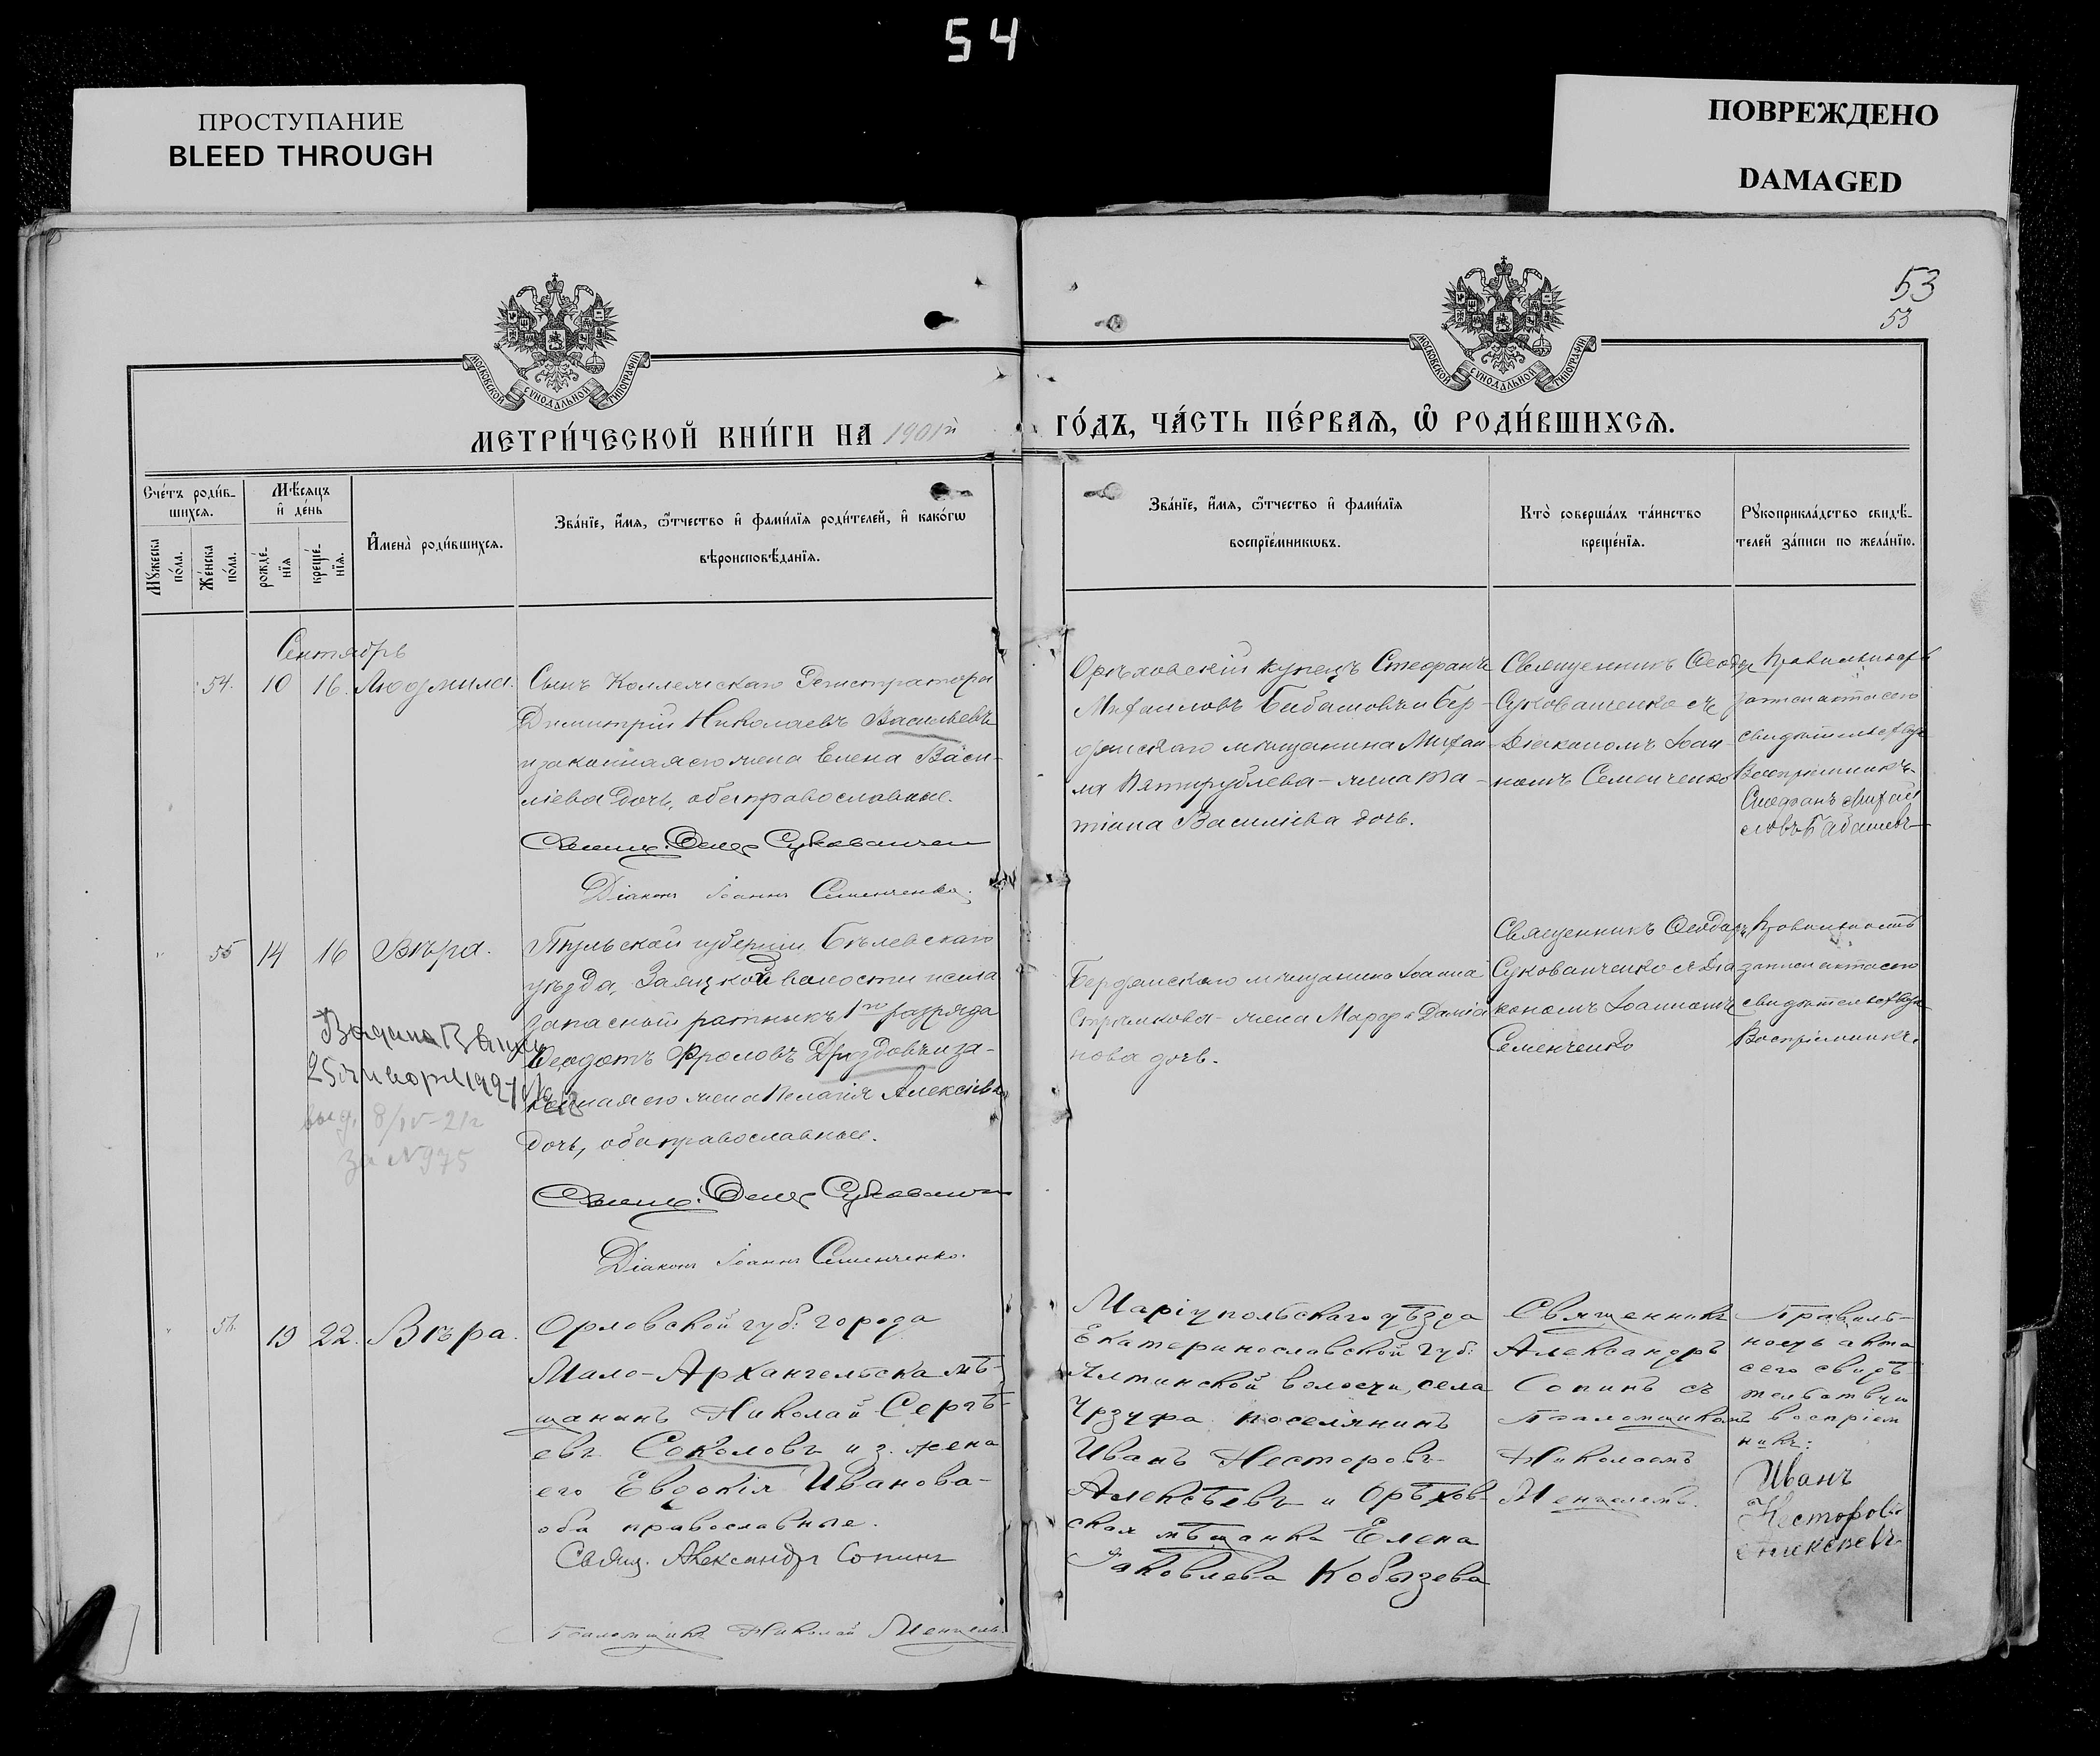 54
ПРОСТУПАНИЕ
BLEED THROUGH
ПОВРЕЖДЕНО
DAMAGED
53
53
МОСКОВСКОЙ СУНОДАЛЬНОЙ ТИПОГРАФІИ
МОСКОВСКОЙ СУНОДАЛЬНОЙ ТИПОГРАФІИ
МЕТРИ́ЧЕСКОЙ КНИ́ГИ НА 1901й ГО́ДЪ, ЧА́СТЬ ПЕ́РВАѦ, Ѡ҆ РОДИ́ВШИХСѦ.
Сче́тъ роди́в-
шихсѧ.
Мѹ́жеска
по́ла.
Же́нска
по́ла.
Мѣ́сѧцъ
и҆ де́нь
рожде́-
нїѧ
креще́-
нїѧ.
И҆мена̀ роди́вшихсѧ.
Зва́нїе, и҆́мѧ, ѻ҆́тчество и҆ фами́лїѧ роди́телей, и҆ како́гѡ
вѣроисповѣ́данїѧ.
Зва́нїе, и҆́мѧ, ѻ҆́тчество и҆ фами́лїѧ
воспрїе́мникѡвъ.
Кто̀ соверша́лъ та́инство
креще́нїѧ.
Рꙋкоприкла́дство свидѣ́-
телей за́писи по жела́нїю.
Сентябрь
54. 10 16. Людмила.
Сынъ Коллежскаго Регистратора
Димитрій Николаевъ Васильевъ
и законная его жена Елена Васи-
ліева дочь, оба православные.
Свящ. Ѳеод. Сукованчен
Діаконъ Іоаннъ Семенченко.
Орѣховскій купецъ Стефанъ
Михаиловъ Бабашовъ и Бер-
дянскаго мѣщанина Михаи-
ла Пятирублева - жена Та-
тіана Василіева дочь.
Священникъ Ѳеодор
Сукованченко съ
Діакономъ Іоан-
номъ Семенченко
Правильность
записи акта сего
свидѣтельствую
Воспріемникъ
Стефанъ Михай
ловъ Бабашевъ
" 55 14 16 Вѣра.
Тульской губерніи Бѣлевскаго
уѣзда, Заицкой волости и села
запасный ратникъ 1го разряда
Ѳеодотъ Фроловъ Дроздовъ и за-
конная его жена Пелагія Алексіева
дочь, оба православные.
Свящ. Ѳеод. Сукованчен
Діаконъ Іоаннъ Семенченко.
выд. 8/IV-21г
за №975
Бердянскаго мѣщанина Іоанна
жена Марѳа Даніи
нова дочь.
Священникъ Ѳеодоръ
Сукованченко съ Діа
кономъ Іоанномъ
Семенченко
Правильность
записи акта сего
свидѣтельствую
Воспріемникъ.
" 56. 19 22. Вѣра.
Орловской губ. города
Мало-Архангельска мѣ-
щанинъ Николай Сергѣ-
евъ Соколовъ и з. жена
его Евдокія Иванова-
оба православные.
Свящ. Александръ Сопинъ
Псаломщикъ Николай Менцель.
Маріупольскаго уѣзда
Екатеринославской Губ.
Ялтинской волости, села
Урзуфа поселянинъ
Иванъ Несторовъ
Алексѣевъ и Орѣхов-
ская мѣщанка Елена
Яковлева Кобызева
Священникъ
Александръ
Сопинъ съ
Псаломщикомъ
Николаемъ
Менцелемъ.
Правиль-
ность акта
сего свидѣ-
тельствую
воспріем
никъ:
Иванъ
Несторовъ
Алексѣевъ